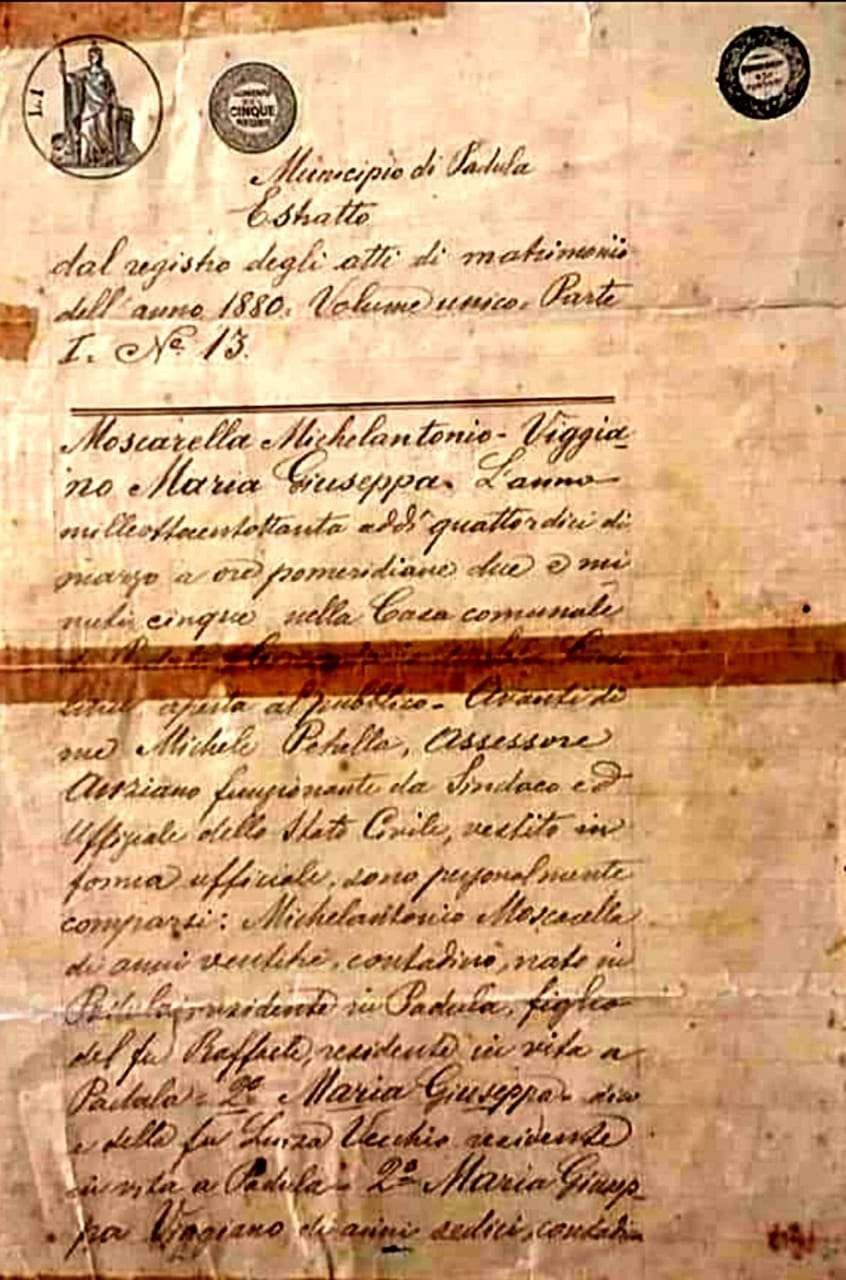 L. 1
CINQUE
Municipio di Padula
Estratto
dal registro degli atti di matrimonio
dell'anno 1880. Volume unico. Parte
I. No. 13.
Moscarella Michelantonio - Viggia
no Maria Giuseppa. L'anno
milleottocentottanta addì quattordici di
marzo a ore pomeridiane due e mi
nuti cinque nella Casa comunale
aperta al pubblico. Avanti di
me Michele Petrella, Assessore
Anziano funzionante da Sindaco ed
Uffiziale dello Stato Civile, vestito in
forma ufficiale, sono personalmente
comparsi: Michelantonio Moscarella
di anni ventitre, contadino, nato in
Padula residente in Padula, figlio
del fu Raffaele, residente in vita a
Padula - 2o Maria Giuseppa
e della fu Luisa Vecchio residente
in vita a Padula - 2o Maria Giusep
pa Viggiano di anni sedici, contadin